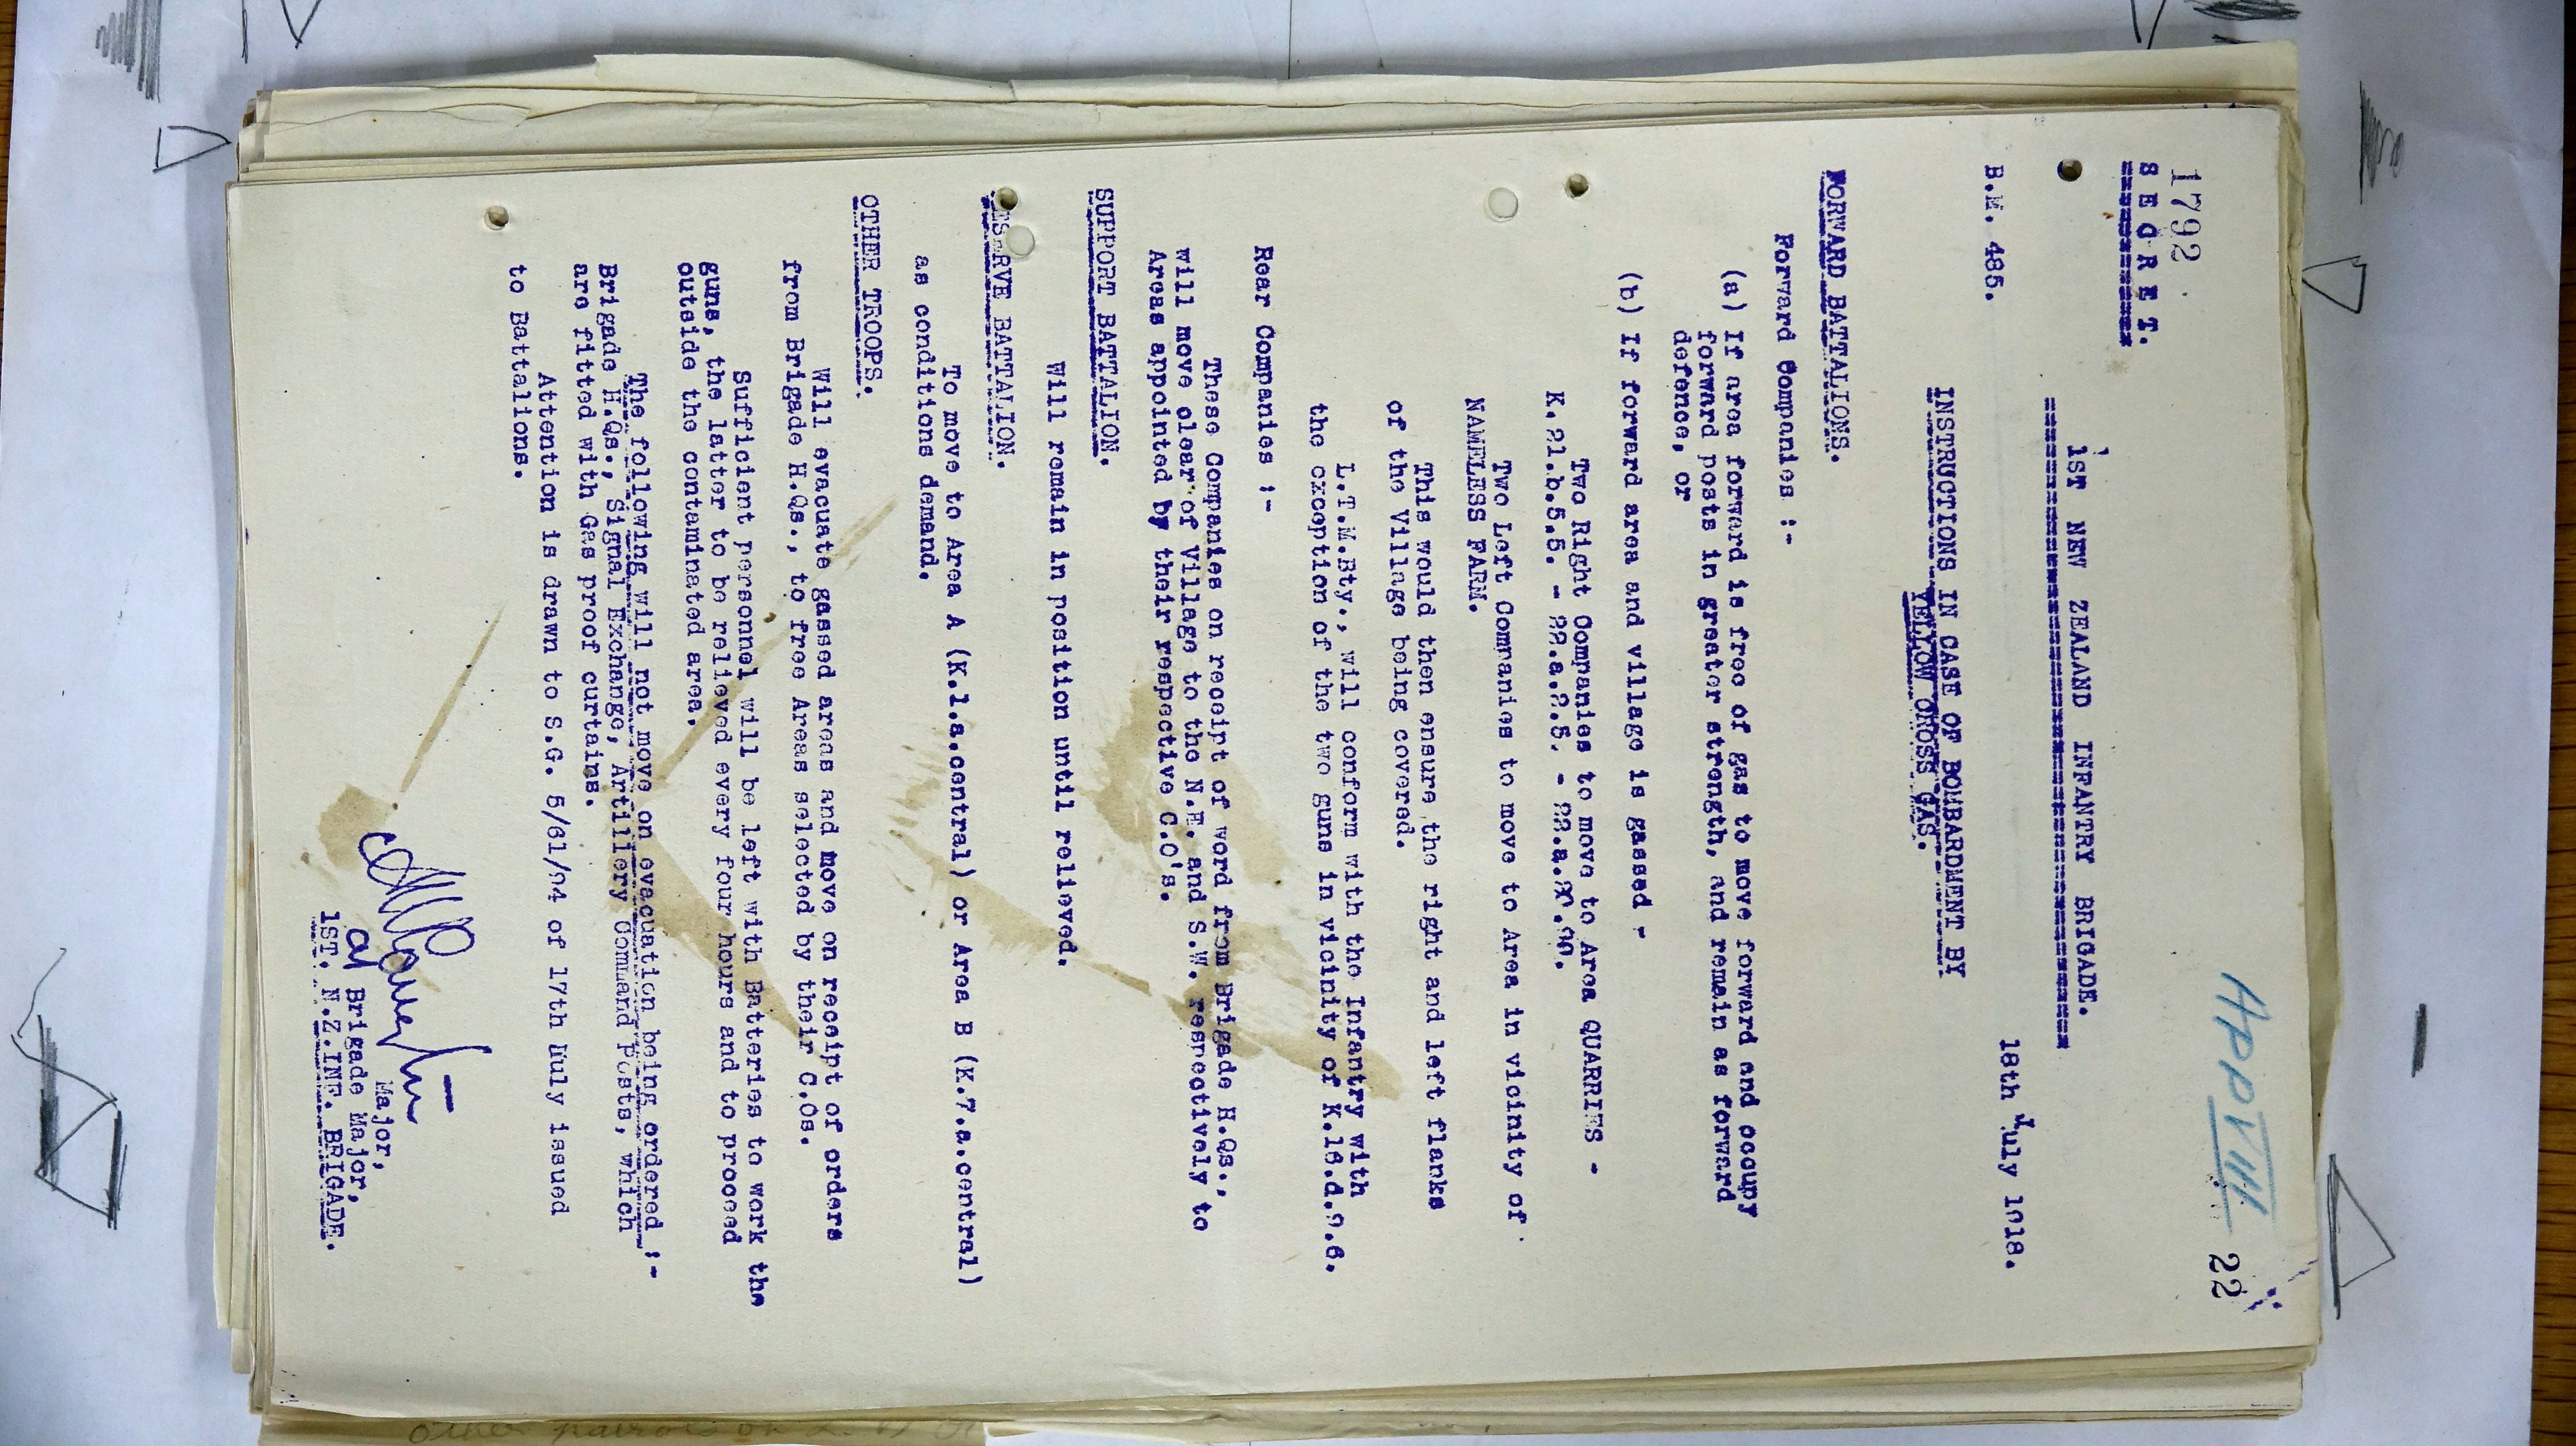 1792
App VIII 22
S E C R E T.
1ST NEW ZEALAND INFANTRY BRIGADE.
B.M. 485. 18th July 1918.
INSTRUCTIONS IN CASE OF BOMBARDMENT BY
YELLOW CROSS GAS.
FORWARD BATTALIONS.
Forward Companies :-
(a) If area forward is free of gas to move forward and occupy
forward posts in greater strength, and remain as forward
defence, or
(b) If forward area and village is gassed -
Two Right Companies to move to Area QUARRIES -
K.21.b.5.5. - 22.a.2.5. -
Two Left Companies to move to Area in vicinity of
NAMELESS FARM.
This would then ensure the right and left flanks
of the Village being covered.
L.T.M.Bty., will conform with the Infantry with
the exception of the two guns in vicinity of
Rear Companies :-
These Companies on receipt of word from Brigade H.Qs.,
will move clear of Village to the N.E. and S.W. respectively to
Areas appointed by their respective C.O's.
SUPPORT BATTALION.
Will remain in position until relieved.
ESERVE BATTALION.
To move to Area A (K.1.a.central) or Area B (K.7.a.central)
as conditions demand.
OTHER TROOPS.
Will evacuate gassed areas and move on receipt of orders
from Brigade H.Qs., to free Areas selected by their C.Os.
Sufficient personnel will be left with Batteries to work the
guns, the latter to be relieved every four hours and to proceed
outside the contaminated area.
The following will not move on evacuation being ordered :-
Brigade H.Qs., Signal Exchange, Artillery Command Posts, which
are fitted with Gas proof curtains.
Attention is drawn to S.G. 5/61/94 of 17th Muly issued
to Battalions.
Major,
a/ Brigade Major,
1ST. N.Z.INF. BRIGADE.